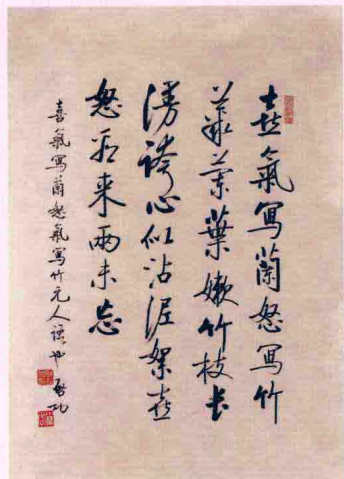 喜氣寫蘭怒寫竹
叢蘭葉嫩竹枝長
漫誇心似沾泥絮喜
怒看來兩未忘
喜氣寫蘭怒氣寫竹元人語也 啟功